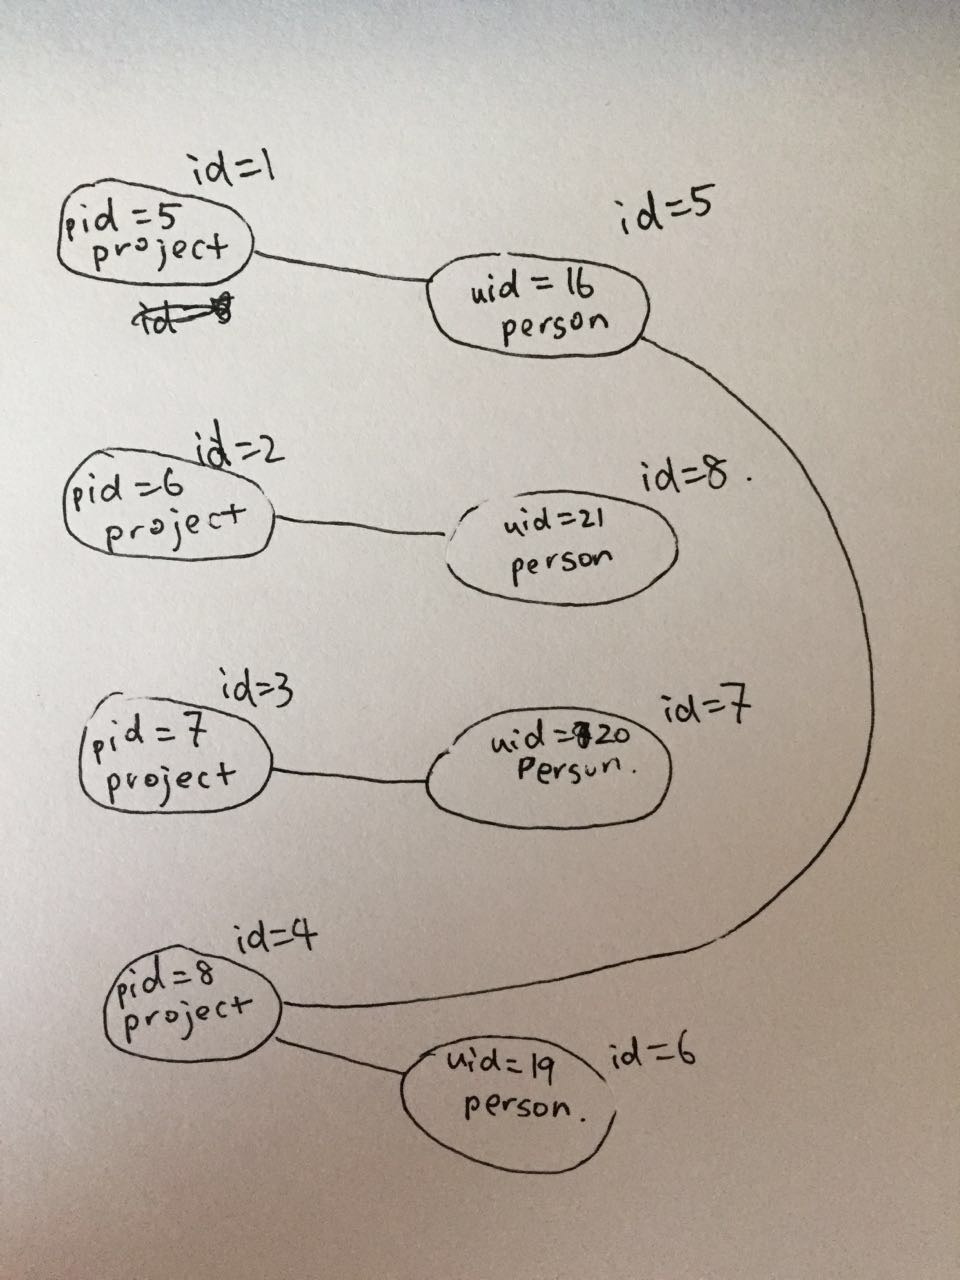 id=1
pid=5
project
id=5
uid=16
person
id=2
pid=6
project
id=8.
uid=21
person
id=3
pid=7
project
id=7
uid=20
Person.
id=4
pid=8
project
id=6
uid=19
person.